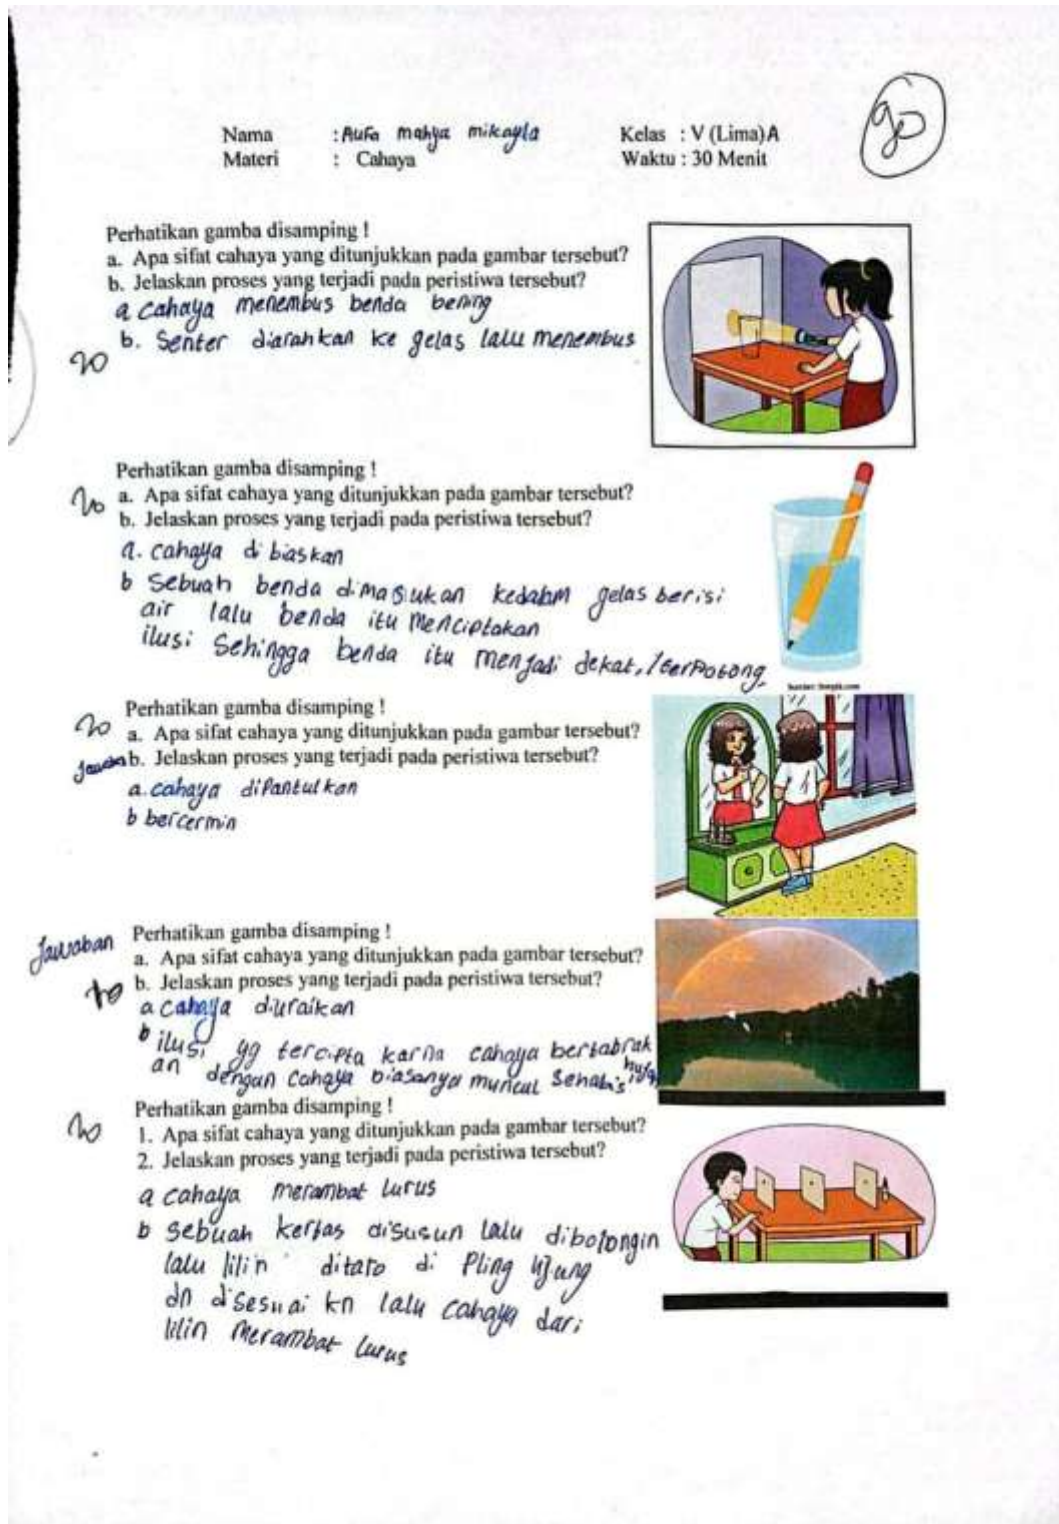 90
Nama : Aufa mahya mikayla Kelas : V (Lima) A
Materi : Cahaya Waktu : 30 Menit
Perhatikan gamba disamping !
a. Apa sifat cahaya yang ditunjukkan pada gambar tersebut?
b. Jelaskan proses yang terjadi pada peristiwa tersebut?
a cahaya menembus benda bening
b. Senter diarahkan ke gelas lalu menembus
20
Perhatikan gamba disamping !
20
a. Apa sifat cahaya yang ditunjukkan pada gambar tersebut?
b. Jelaskan proses yang terjadi pada peristiwa tersebut?
a. cahaya di biaskan
b Sebuah benda dimasukan kedalam gelas berisi
air lalu benda itu menciptakan
ilusi Sehingga benda itu menjadi dekat, / terpotong
Perhatikan gamba disamping !
20
a. Apa sifat cahaya yang ditunjukkan pada gambar tersebut?
b. Jelaskan proses yang terjadi pada peristiwa tersebut?
a. cahaya dipantulkan
b bercermin
Jawaban
Perhatikan gamba disamping !
a. Apa sifat cahaya yang ditunjukkan pada gambar tersebut?
b. Jelaskan proses yang terjadi pada peristiwa tersebut?
10
a cahaya diuraikan
b ilusi yg tercipta karna cahaya bertabrak
an dengan cahaya biasanya muncul sehabis hujan
Perhatikan gamba disamping !
20
1. Apa sifat cahaya yang ditunjukkan pada gambar tersebut?
2. Jelaskan proses yang terjadi pada peristiwa tersebut?
a cahaya merambat lurus
b sebuah kertas disusun lalu dibolongin
lalu lilin ditaro di Pling ujung
dn disesuai kn lalu cahaya dari
lilin merambat lurus